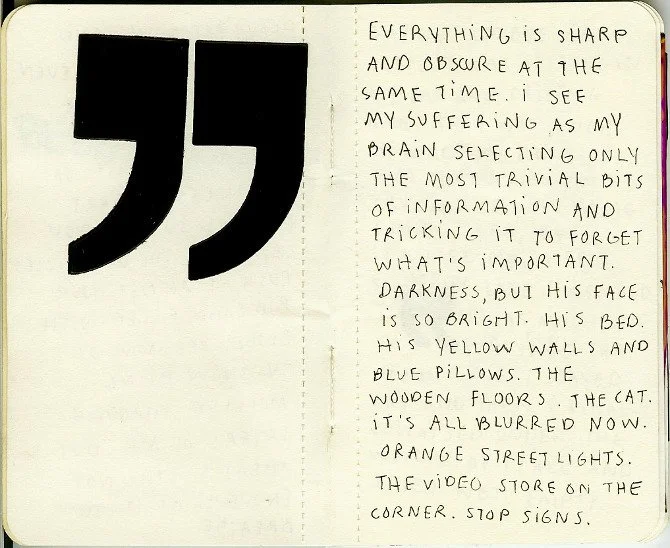 ”
EVERYTHiNG iS SHARP
AND OBSCURE AT THE
SAME TiME. i SEE
MY SUFFERiNG AS MY
BRAiN SELECTiNG ONLY
THE MOST TRiViAL BiTS
OF iNFORMATiON AND
TRiCKiNG iT TO FORGET
WHAT'S iMPORTANT.
DARKNESS, BUT HiS FACE
iS SO BRiGHT. HiS BED.
HiS YELLOW WALLS AND
BLUE PiLLOWS. THE
WOODEN FLOORS. THE CAT.
iT'S ALL BLURRED NOW.
ORANGE STREET LiGHTS.
THE ViDEO STORE ON THE
CORNER. STOP SiGNS.